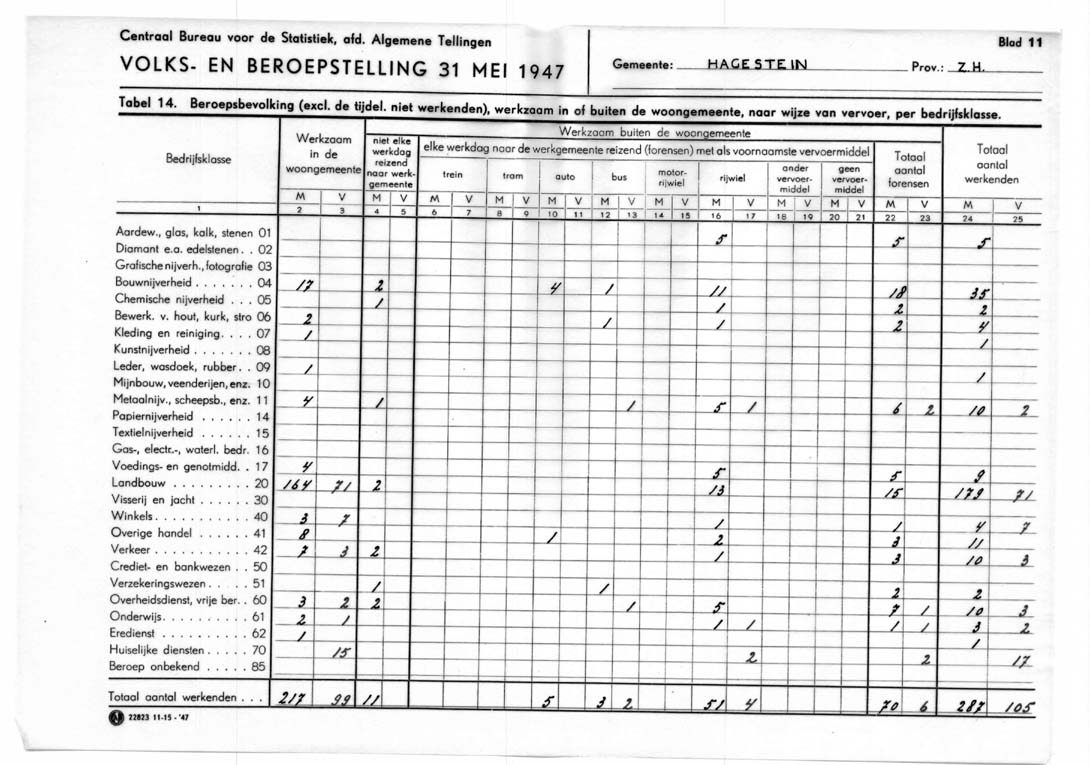 Centraal Bureau voor de Statistiek, afd. Algemene Tellingen
Blad 11
VOLKS- EN BEROEPSTELLING 31 MEI 1947
Gemeente: HAGESTEIN Prov.: Z.H.
Tabel 14. Beroepsbevolking (excl. de tijdel. niet werkenden), werkzaam in of buiten de woongemeente, naar wijze van vervoer, per bedrijfsklasse.
Bedrijfsklasse
Werkzaam in de woongemeente
Werkzaam buiten de woongemeente
niet elke werkdag reizend naar werk-gemeente
elke werkdag naar de werkgemeente reizend (forensen) met als voornaamste vervoermiddel
trein tram auto bus motor-rijwiel rijwiel ander vervoer-middel geen vervoer-middel
Totaal aantal forensen
Totaal aantal werkenden
M V M V M V M V M V M V M V M V M V M V M V M V
1 2 3 4 5 6 7 8 9 10 11 12 13 14 15 16 17 18 19 20 21 22 23 24 25
Aardew., glas, kalk, stenen 01 5 5 5
Diamant e.a. edelstenen . . 02
Grafische nijverh., fotografie 03
Bouwnijverheid . . . . . . . 04 17 2 4 1 11 18 35
Chemische nijverheid . . . 05 1 1 2 2
Bewerk. v. hout, kurk, stro 06 2 1 1 2 4
Kleding en reiniging . . . . 07 1 1
Kunstnijverheid . . . . . . . 08
Leder, wasdoek, rubber. . 09 1 1
Mijnbouw, veenderijen, enz. 10
Metaalnijv., scheepsb., enz. 11 4 1 1 5 1 6 2 10 2
Papiernijverheid . . . . . . 14
Textielnijverheid . . . . . . 15
Gas-, electr.-, waterl. bedr. 16
Voedings- en genotmidd. . 17 4 5 5 9
Landbouw . . . . . . . . . 20 164 71 2 13 15 179 71
Visserij en jacht . . . . . . 30
Winkels. . . . . . . . . . . 40 3 7 1 1 4 7
Overige handel . . . . . . . 41 8 1 2 3 11
Verkeer . . . . . . . . . . . 42 7 3 2 1 3 10 3
Crediet- en bankwezen . . 50
Verzekeringswezen . . . . . 51 1 1 2 2
Overheidsdienst, vrije ber. . 60 3 2 2 1 5 7 1 10 3
Onderwijs. . . . . . . . . . 61 2 1 1 1 1 1 3 2
Eredienst . . . . . . . . . . 62 1 1
Huiselijke diensten . . . . . 70 15 2 2 17
Beroep onbekend . . . . . 85
Totaal aantal werkenden . . . 217 99 11 5 3 2 51 4 70 6 287 105
22823 11-15 - '47